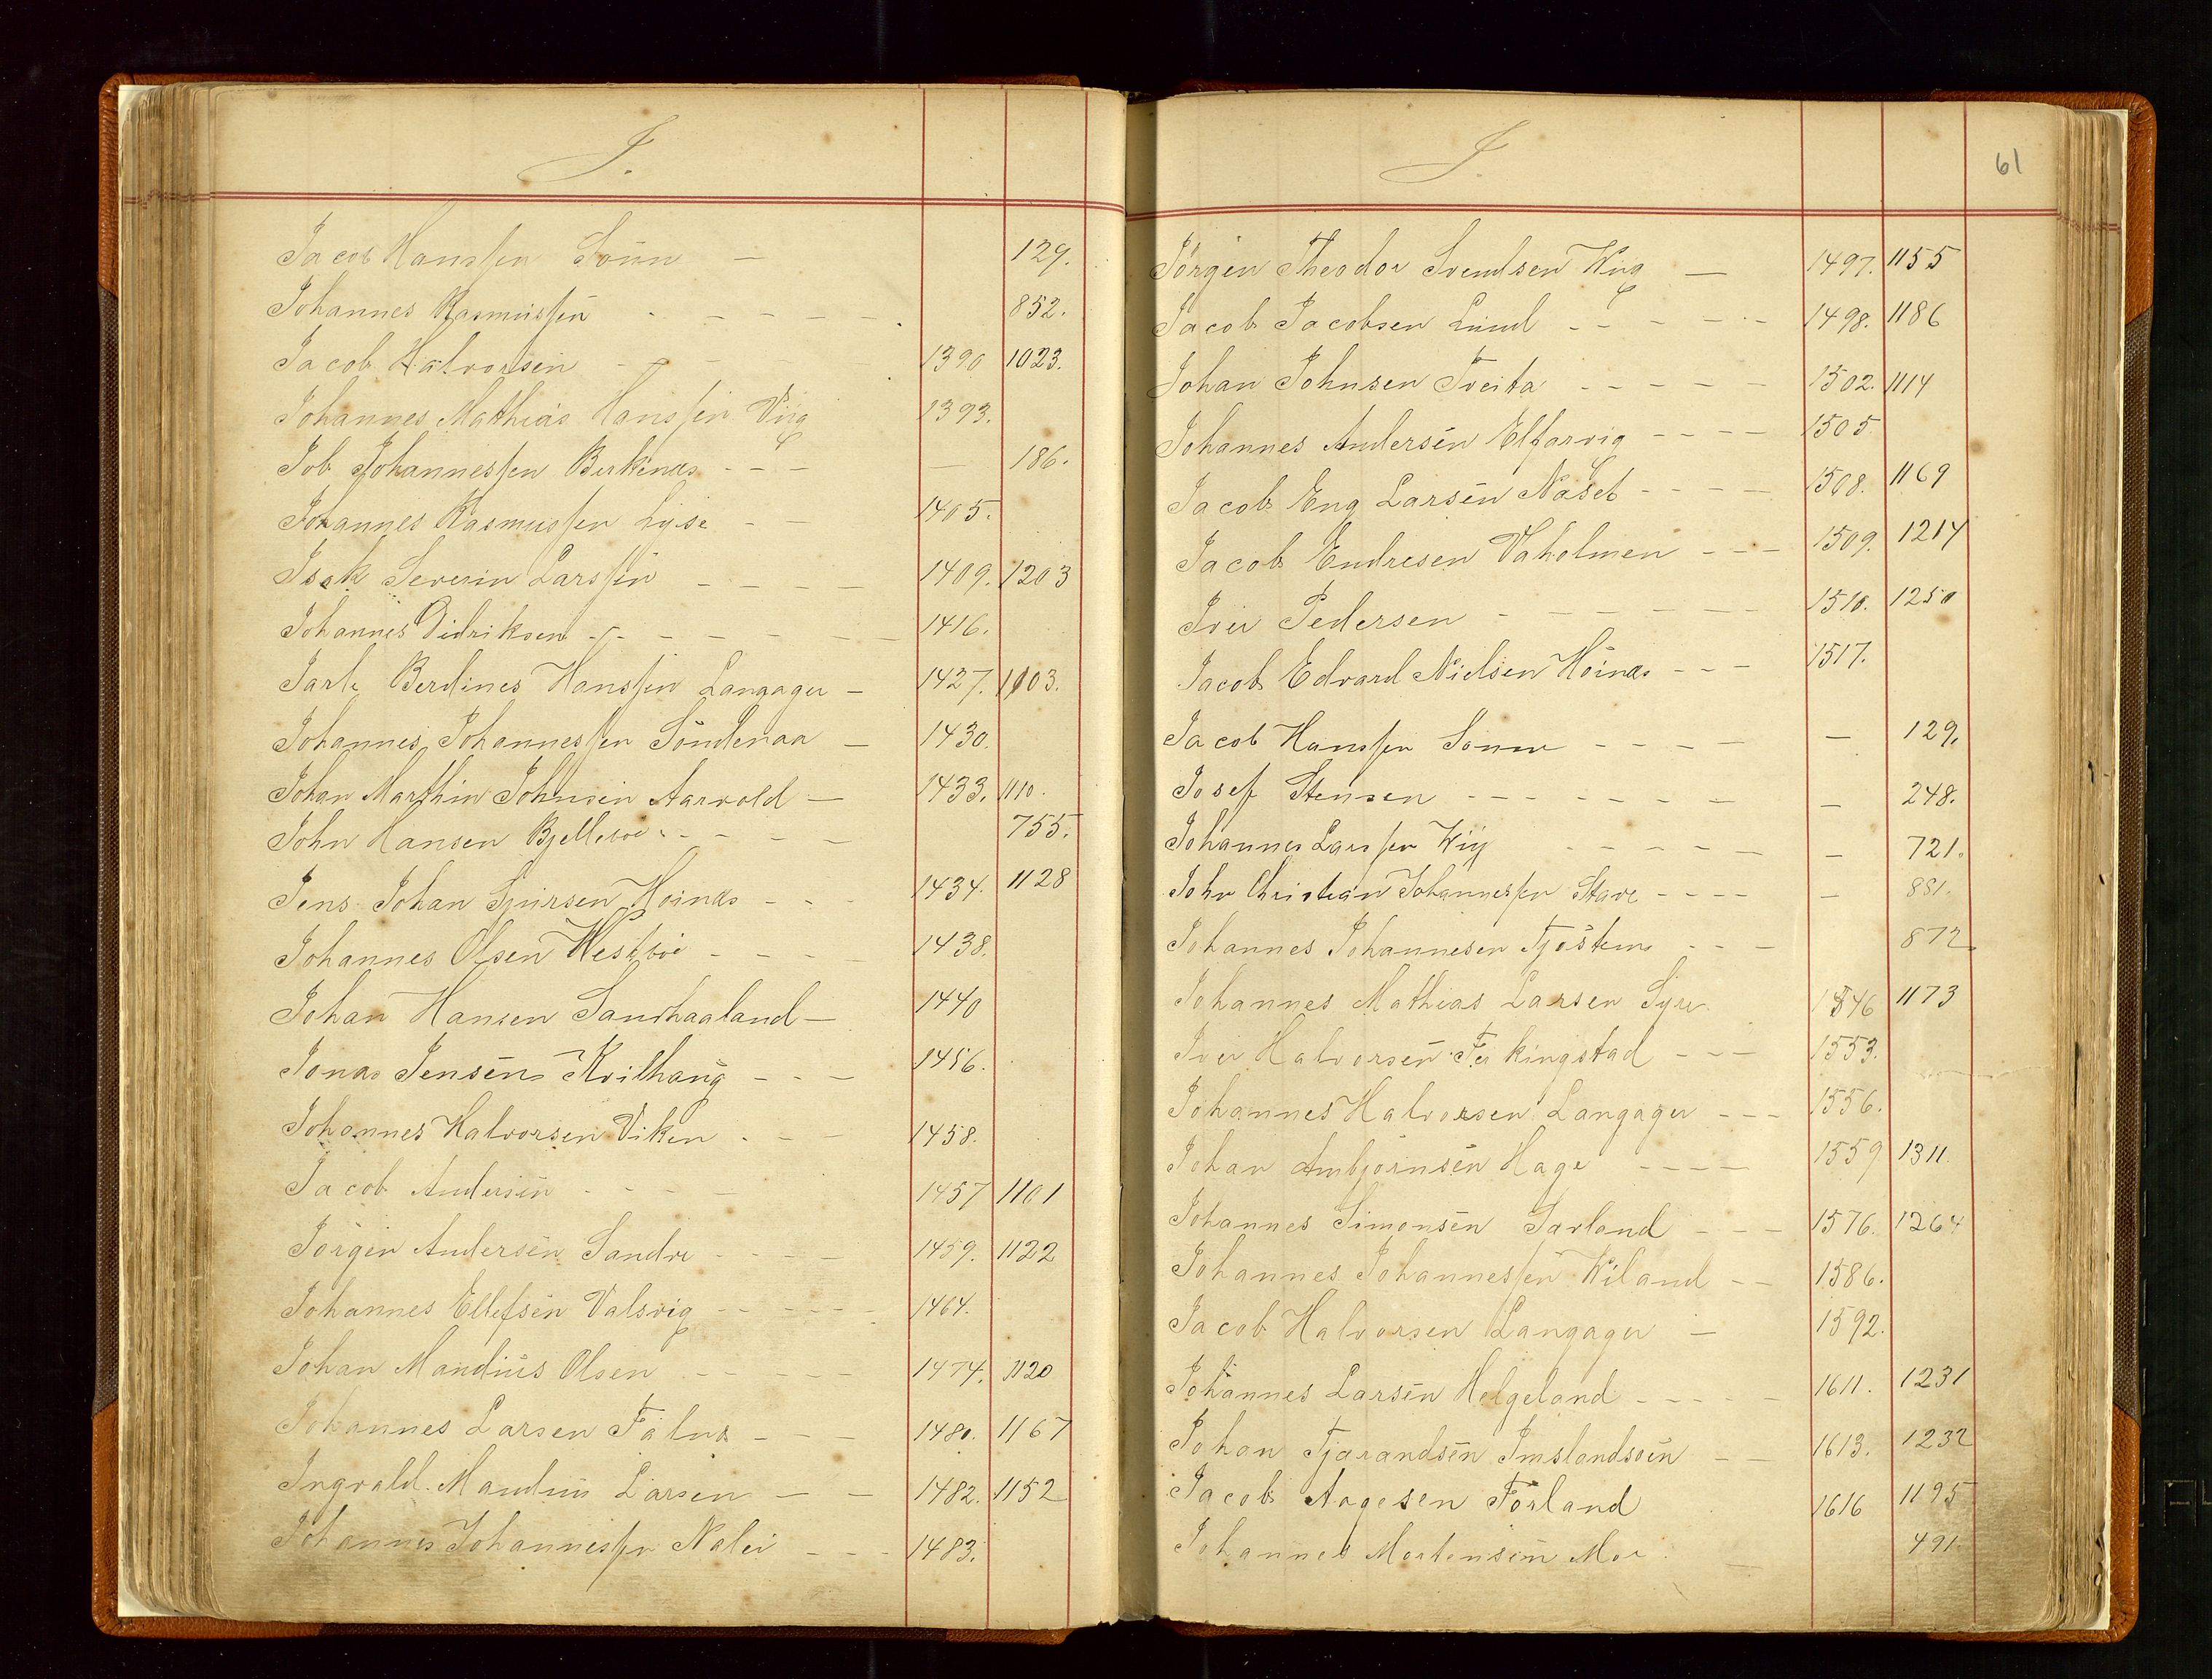 J.
Jacob Hanssen Sönn — 129.
Johannes Rasmussen - - - - - 852.
Jacob Halvorsen - - - 1390 1023.
Johannes Mathias Hanssen Viig 1393.
Job Johannessen Birkenæs - - - — 186.
Johannes Rasmussen Lyse - - 1405.
Isak Severin Larssen - - - - 1409. 1203
Johannes Didriksen - - - - - - 1416.
Jarle Berdines Hanssen Langager - 1427. 1103.
Johannes Johannessen Sönderaa — 1430.
Johan Marthin Johnsen Aarvold — 1433. 1110.
John Hansen Bjellevoe - - - - 755.
Jens Johan Hoinæs - - - 1434. 1128
Johannes Olsen Westböe - - - - 1438.
Johan Hansen Sandhaaland — 1440
Jonas Jensen Kvilhaug - - - 1456.
Johannes Halvorsen Viken - - - 1458.
Jacob Andersen - - - - 1457 1101
Jörgen Andersen Sandve - - - - 1459. 1122
Johannes Ellefsen Valsvig - - - - - 1464.
Johan Mandius Olsen - - - - - 1474. 1120
Johannes Larsen Falnæs - - - 1480. 1167
Ingvald Mandius Larsen — — 1482. 1152
Johannes Johannessen Nalei - - - 1483.
J. 61
Jörgen Theodor Svendsen Wiig — 1497. 1155
Jacob Jacobsen Lund - - - - - 1498. 1186
Johan Johnsen Tveita - - - - - 1502. 1114
Johannes Andersen Elfarvig - - - - 1505
Jacob Eng Larsen Næset - - - - 1508. 1169
Jacob Endresen Vaholmen - - - 1509. 1214
Iver Pedersen - - - - - - 1510. 1250
Jacob Edvard Nielsen Höinæs - - - 1517.
Jacob Hanssen Sönn - - - - — 129.
Josef Stensen - - - - - - - — 248.
Johannes Larssen Wiig - - - - - — 721.
John Christian Johannessen Stave - - - - — 881.
Johannes Johannesen Tjöstems - - - 872
Johannes Mathias Larsen Syre 1546 1173
Iver Halvorsen Ferkingstad - - - 1553.
Johannes Halvorsen Langager - - - 1556.
Johan Ambjörnsen Hage - - - - 1559 1311.
Johannes Simonsen Sørland - - - 1576. 1264
Johannes Johannessen Wiland - - 1586.
Jacob Halvorsen Langager — 1592.
Johannes Larsen Helgeland - - - - 1611. 1231
Johan Tjarandsen Imslandsöen - - 1613. 1232
Jacob Aagesen Förland 1616 1195
Johannes Mortensen — 491